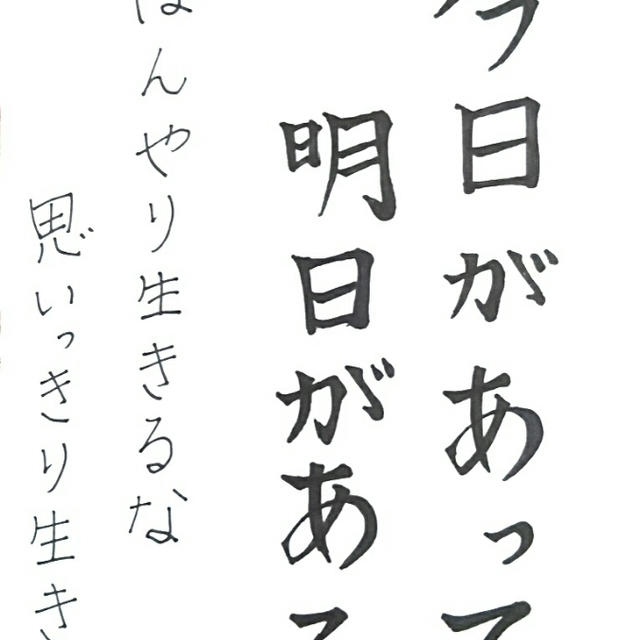 今日があって
明日がある
ぼんやり生きるな
思いっきり生き